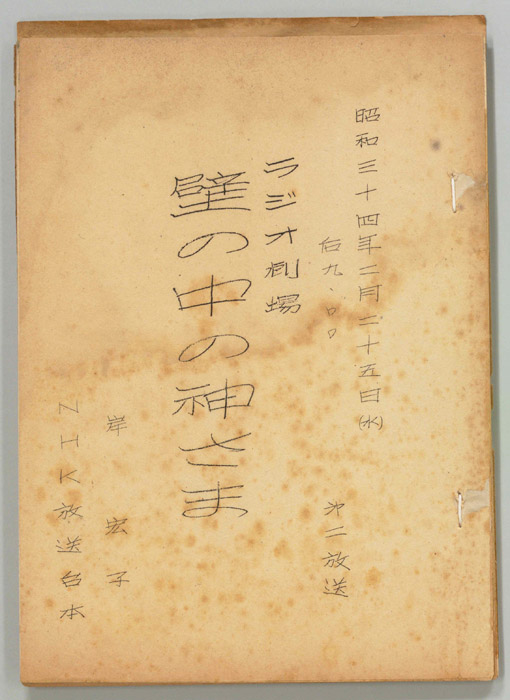 昭和三十四年二月二十五日(水)
后九、〇〇
㐧二放送
ラジオ劇場
壁の中の神さま
岸宏子
NHK放送台本